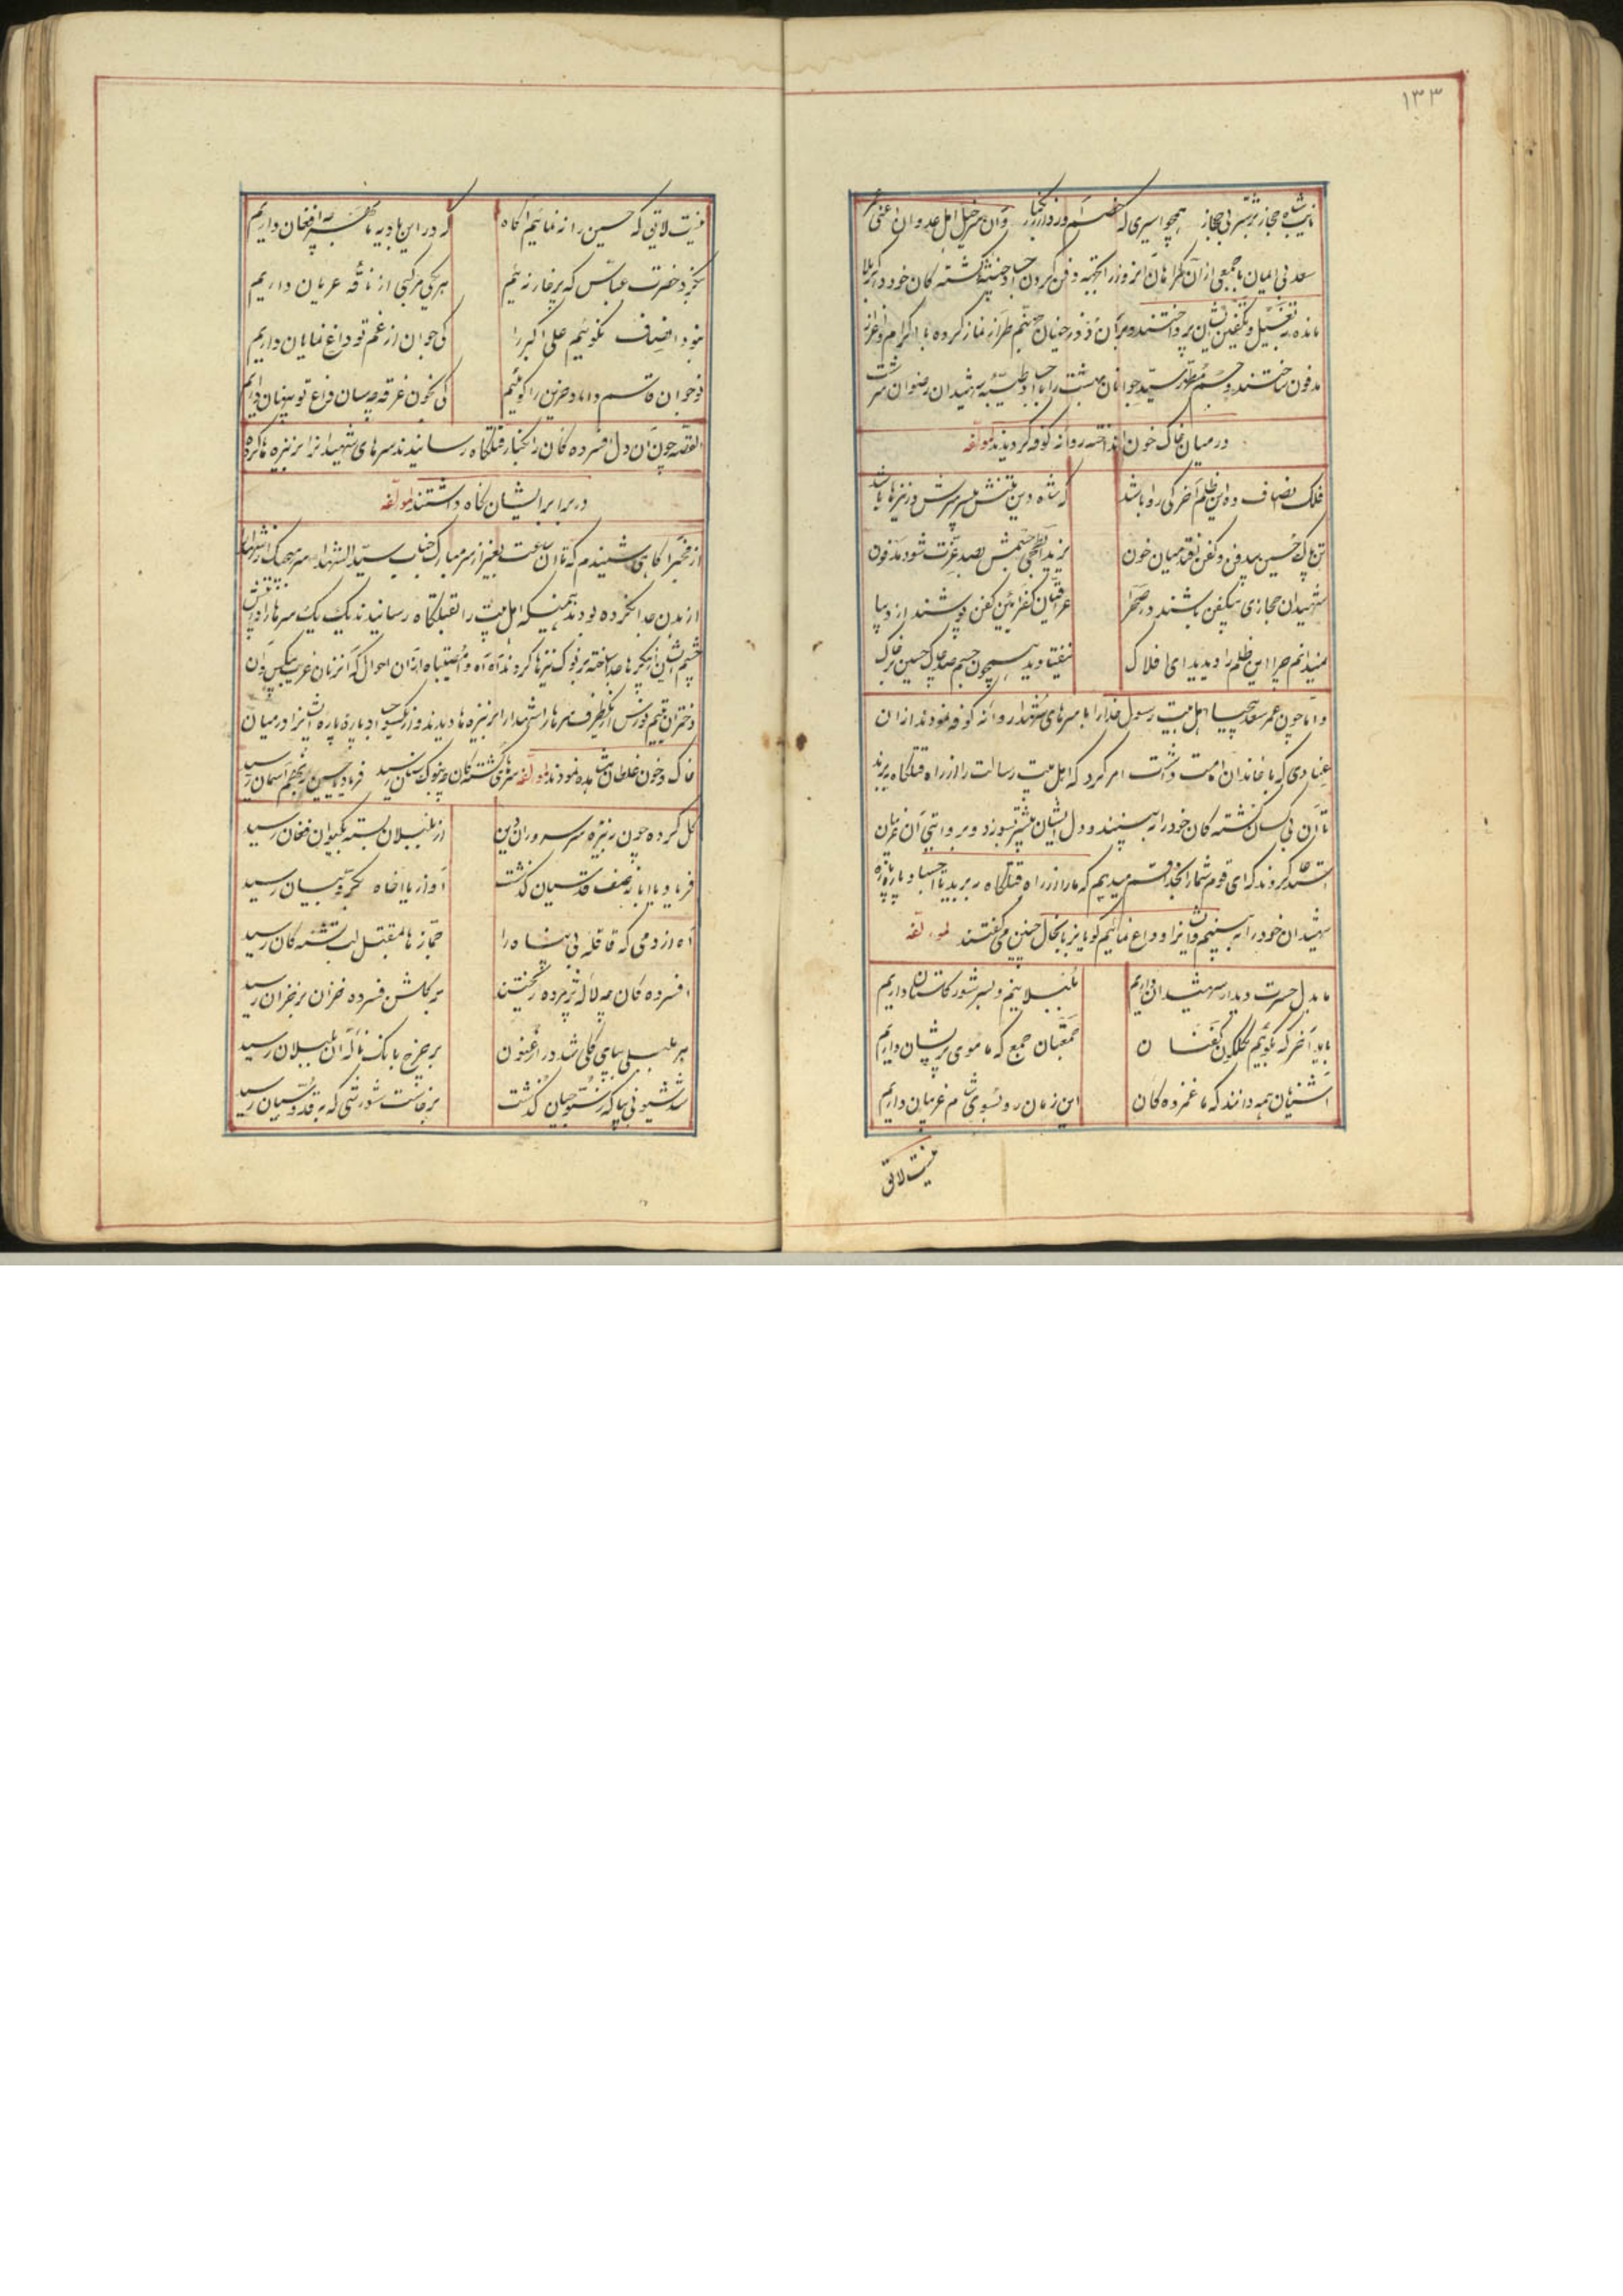 ۱۳۳
نایب شاه حجاز بر شتر بی جهاز همچو اسیری که
سعد بی ایمان با جمعی از آن گمراهان آنروز را بجهة دفن کردن اجساد خبیثه کشته کان خود در کربلا
مانده به تغسیل و تکفین ایشان پرداختند و بر آن دوزخیان جهنم طراز نماز کرده با اکرام و اعزاز
مدفون ساختند و جسم مطهر سید جوانان بهشت را با اجساد طیبه شهیدان رضوان سرشت
در میان خاک و خون انداخته روانه کوفه گردیدند لمؤلفه
فلک انصاف ده این ظلم آخر کی روا باشد
که شاه دین تنش بی سر سرش بر نیزها باشد
تن پاک حسین بیدفن و کفن افتد میان خون
یزید آبطحی جسمش بصد عزت شود مدفون
شهیدان حجازی بیکفن باشند در صحرا
عراقیان کفر آئین کفن پوشند از دیبا
نمیدانم چرا این ظلم را دیدید ای افلاک
نیفتادید همچون جسم صد چاک حسین بر خاک
و اما چون عمر سعد بیحیا اهل بیت رسول خدا را با سرهای شهدا روانه کوفه نمودند از آن
عنادی که با خاندان امامت داشت امر کرد که اهل بیت رسالت را از راه قتلگاه برند
تا آن بی کسان کشته کان خود را ببینند و دل ایشان بیشتر بسوزد و بروایتی آن غریبان
استدعا کردند که ای قوم شما را بخدا قسم میدهیم که ما را از راه قتلگاه ببرید تا اجساد پاره پاره
شهیدان خود را ببینیم و ایشانرا وداع نمائیم گویا بزبانحال چنین میگفتند لمؤلفه
ما بدل حسرت دیدار شهیدان داریم
بلبلانیم و بسر شور گلستان داریم
باید آخر که بگوئیم بگلگون کفنان
جمع که ما موی پریشان داریم
آشنایان همه دانند که ما غمزده کان
این زمان رو بسوی شام غریبان داریم
نیست لایق
نیست لایق که حسین را ننمائیم آگاه
که در این بادیه ما افغان داریم
بخرد حضرت عباس که بر خار نه ئیم
هر یکی مرکبی از ناقه عریان داریم
نبود انصاف نگوئیم علی اکبر را
کی جوان از غم تو داغ نمایان داریم
نوجوان قاسم داماد حزین را گوئیم
کی بخون غرقه چه سان داغ تو پنهان داریم
القصه چون آن دل افسرده کان را بکنار قتلگاه رسانیدند سرهای شهیدانرا بر نیزه ها کرده
در برابر ایشان نگاه داشتند لمؤلفه
از مخبر آگاهی شنیدم که تا آن ساعت بغیر از سر مبارک جناب سید الشهدا سر هیچیک از شهدا را
از بدن جدا نکرده بودند همینکه اهل بیت را بقتلگاه رسانیدند یک یک سرها را در پیش
چشم ایشان از پیکرها جدا ساخته بر نوک نیزها کردند آه آه وا مصیبتاه از آن احوال که آنزنان غریب بیکس و آن
دختران یتیم نورس از یکطرف سرهای شهدا را بر نیزه ها دیدند و از یکسو اجساد پاره پاره ایشانرا در میان
خاک و خون غلطان مشاهده نمودند لمؤلفه سرهای کشته کان چو بنوک سنان رسید فریاد یا حسین به نهم آسمان رسید
گل کرده چون به نیزه سر سروران دین
از بلبلان بسته بگیوان فغان رسید
فریاد یا ابا ز صف قدسیان گذشت
آواز یا اخاه بحر و بیان رسید
آه از دمی که قافله بی پناه را
جماز ها بمقتل لب تشنه کان رسید
افسرده کان چه لاله پژمرده ریختند
بر گلشن فسرده خزان بر خزان رسید
هر بلبلی بپای گلی شد در ارغنون
بر چرخ بانک ناله آن بلبلان رسید
شد شیونی بپا که ز نه جهان گذشت
برخاست شورشی که بقدوسیان رسید